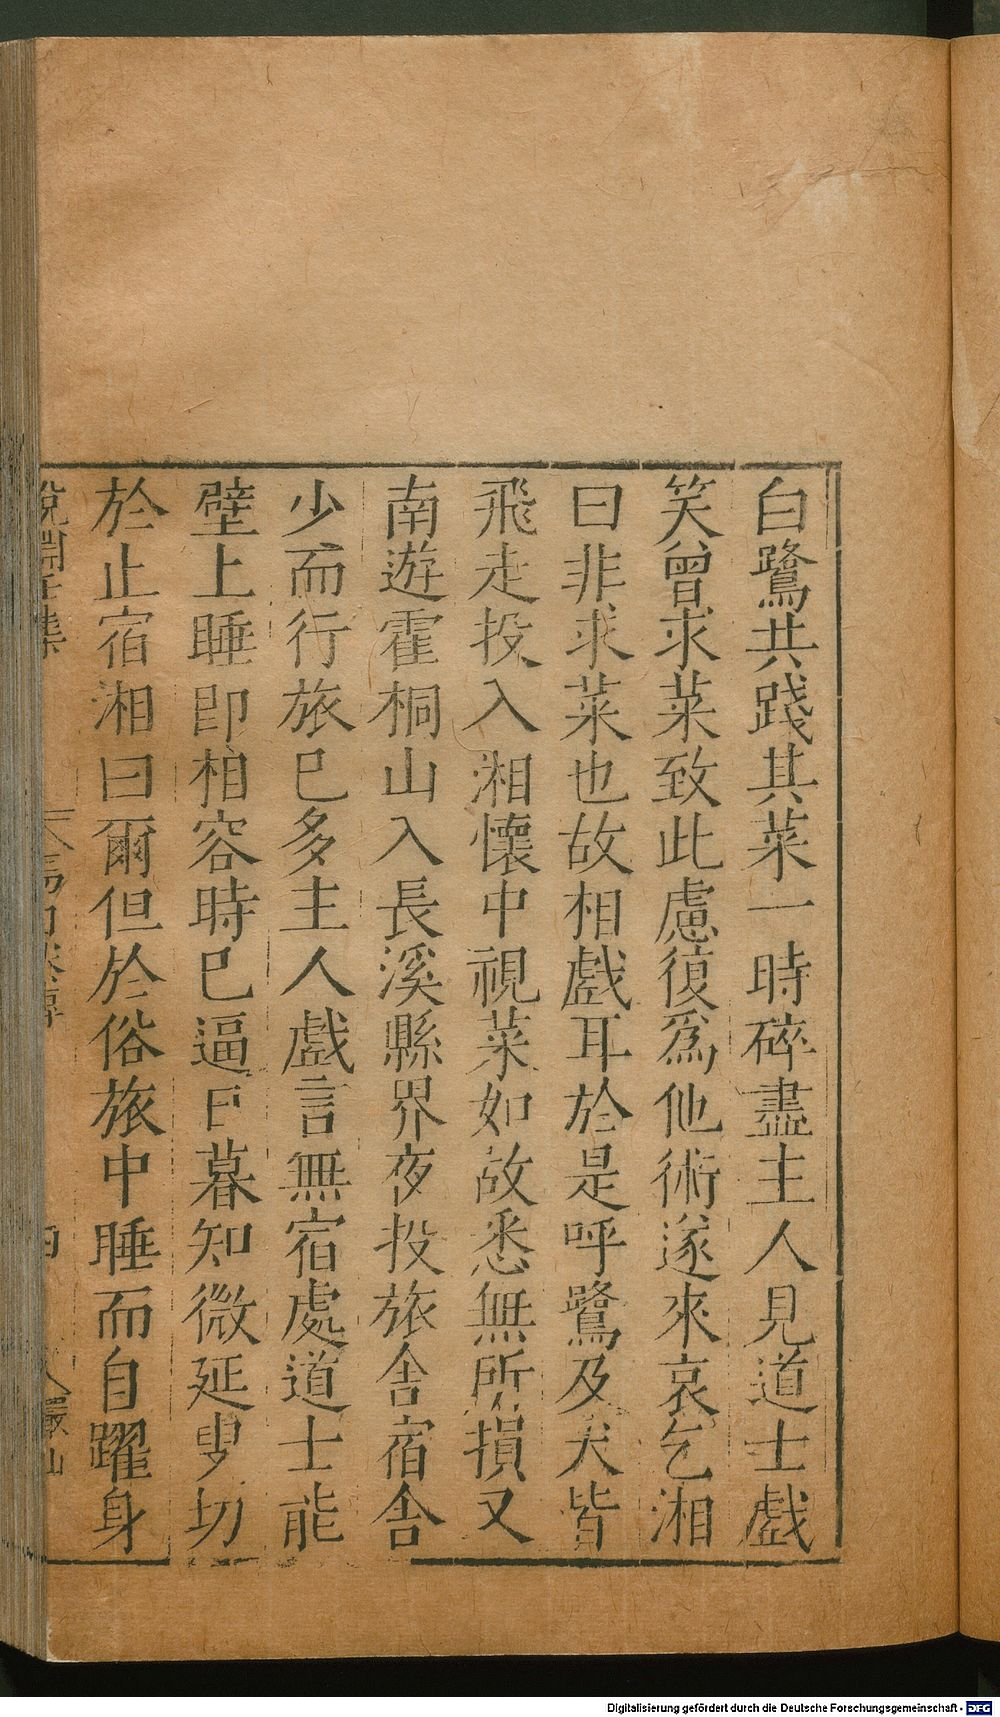 白鷺共踐其菜一時碎盡主人見道士戲
笑曾求菜致此慮復爲他術遂來哀乞湘
曰非求菜也故相戲耳於是呼鷺及犬皆
飛走投入湘懷中視菜如故悉無所損又
南遊霍桐山入長溪縣界夜投旅舍宿舍
少而行旅已多主人戲言無宿處道士能
壁上睡即相容時已逼日暮知微延叟切
於止宿湘曰爾但於俗旅中睡而自躍身
Digitalisierung gefördert durch die Deutsche Forschungsgemeinschaft - DFG